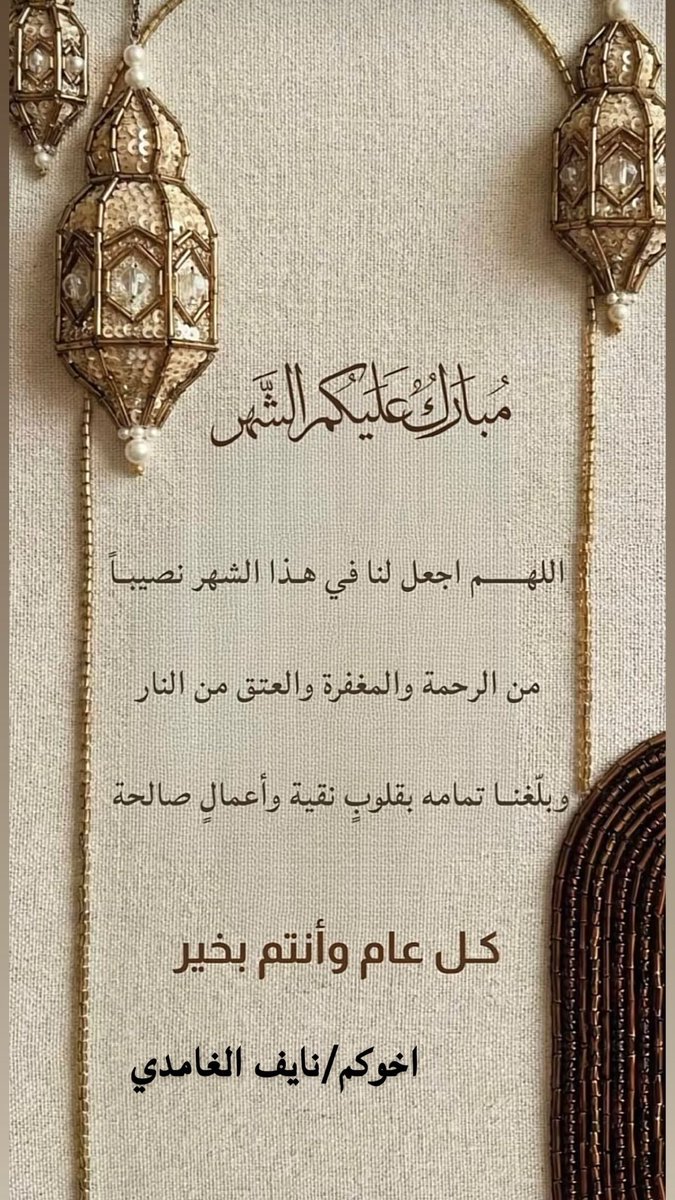 مُبَارَكٌ عَلَيْكُم الشَّهر
اللهــــم اجعل لنا في هـذا الشهر نصيبـاً
من الرحمة والمغفرة والعتق من النار
وبلّغنـا تمامه بقلوبٍ نقية وأعمالٍ صالحة
كـل عام وأنتم بخير
اخوكم/نايف الغامدي